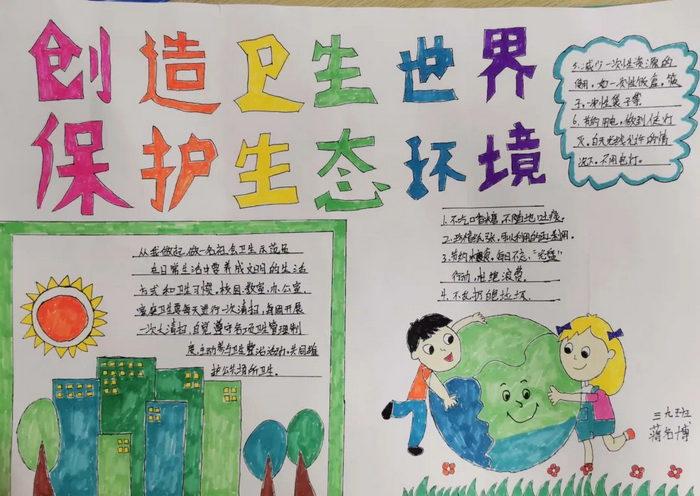 创造卫生世界
保护生态环境
从我做起,做一名社会卫生示范员
在日常生活中要养成文明的生活
方式和卫生习惯,校园、教室、办公室、
家庭卫生要每天进行一次清扫,每周开展
一次大清扫,自觉遵守各项卫生管理制
度,主动参与卫生整治活动,共同维
护公共场所卫生。
1.不吃口香糖,不随地吐痰。
2.珍惜纸张,
3.节约水资源,每日不忘“光盘”
行动,杜绝浪费。
4.不乱扔垃圾
5.减少一次性资源的
使用,如一次性饭盒,筷
子,一次性袋子等
6.节约用电,做到随手关灯
白天光线允许的情
况下,不用电灯。
三九班
蒲名博